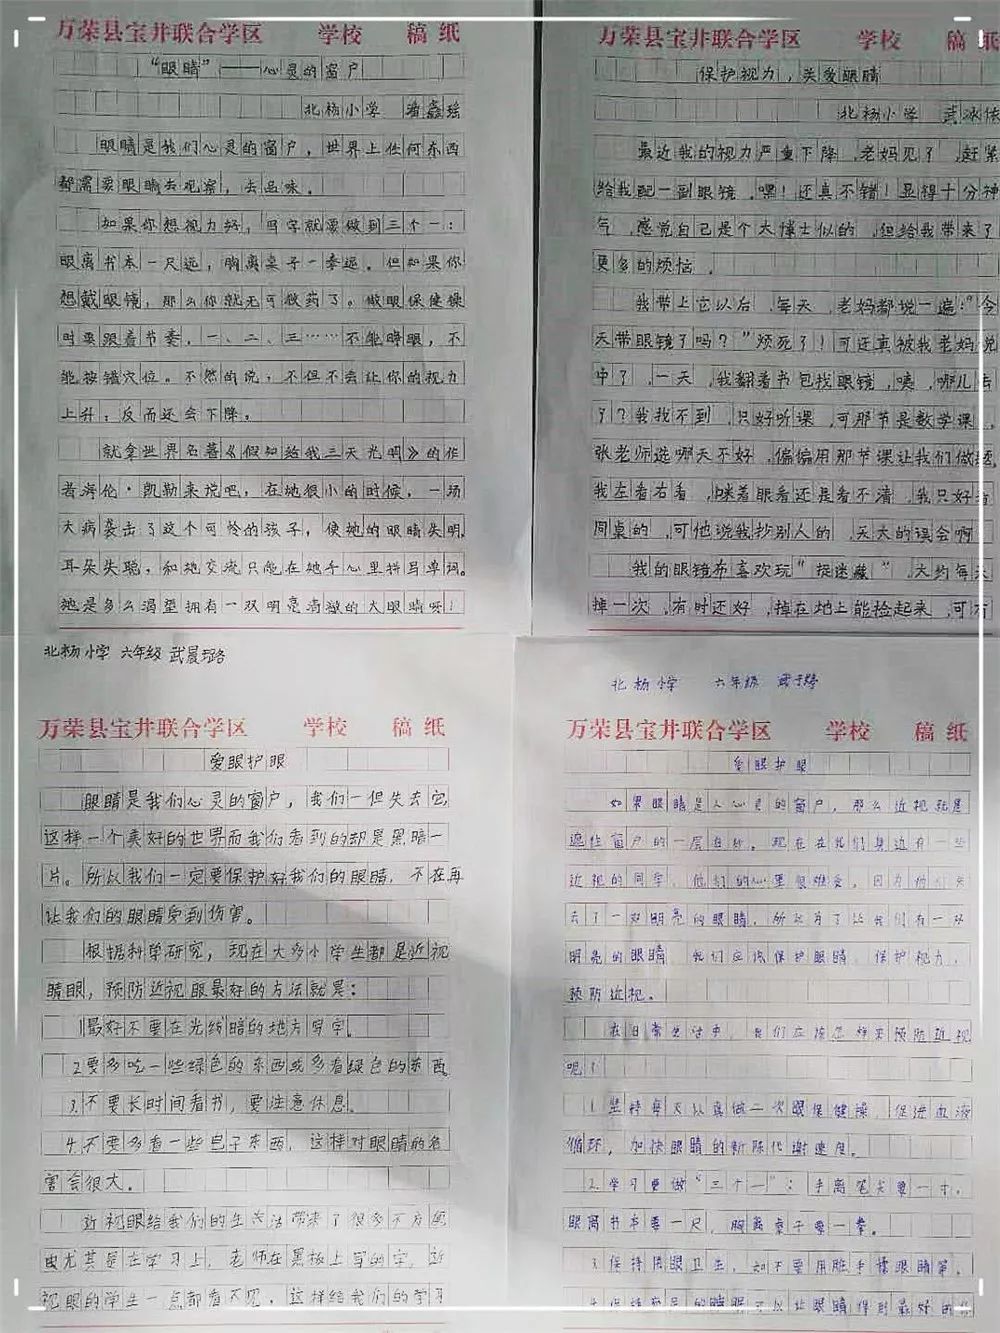 万荣县宝井联合学区 学校 稿纸
“眼睛”——心灵的窗户
北杨小学 潘鑫瑶
眼睛是我们心灵的窗户，世界上任何东西
都需要眼睛去观察，去品味。
如果你想视力好，写字就要做到三个一：
眼离书本一尺远，胸离桌子一拳远。但如果你
想戴眼镜，那么你就无可救药了。做眼保健操
时要跟着节奏，一、二、三……不能睁眼，不
能按错穴位。不然的说，不但不会让你的视力
上升，反而还会下降。
就拿世界名著《假如给我三天光明》的作
者海伦·凯勒来说吧，在她很小的时候，一场
大病袭击了这个可怜的孩子，使她的眼睛失明，
耳朵失聪，和她交流只能在她手心里拼写单词。
她是多么渴望拥有一双明亮清澈的大眼睛呀！
万荣县宝井联合学区 学校 稿纸
保护视力，关爱眼睛
北杨小学 武冰
最近我的视力严重下降，老妈见了，赶紧
给我配一副眼镜，嘿！还真不错！显得十分神
气，感觉自己是个大博士似的，但给我带来了
更多的烦恼。
我带上它以后，每天，老妈都说一遍：“今
天带眼镜了吗？”烦死了！可还真被我老妈说
中了，一天，我翻着书包找眼镜，咦，哪儿去
了？我找不到，只好听课，可那节是数学课，
张老师选哪天不好，偏偏用那节课让我们做题，
我左看右看，眯着眼看还是看不清，我只好看
同桌的，可他说我抄别人的，天大的误会啊
我的眼镜布喜欢玩“捉迷藏”，大约每天
掉一次，有时还好，掉在地上能捡起来，可有
北杨小学 六年级 武晨璐
万荣县宝井联合学区 学校 稿纸
爱眼护眼
眼睛是我们心灵的窗户，我们一但失去它，
这样一个美好的世界而我们看到的却是黑暗一
片。所以我们一定要保护好我们的眼睛，不在再
让我们的眼睛受到伤害。
根据科学研究，现在大多小学生都是近视
睛眼，预防近视眼最好的方法就是：
1最好不要在光线暗的地方写字。
2.要多吃一些绿色的东西或多看绿色的东西。
3.不要长时间看书，要注意休息。
4.不要多看一些电子东西，这样对眼睛的危
害会很大。
近视眼给我们的生活带来了很多不方便
尤其是在学习上，老师在黑板上写的字，近
视眼的学生一点都看不见，这样给我们的学习
北杨小学 六年级
万荣县宝井联合学区 学校 稿纸
爱眼护眼
如果眼睛是人心灵的窗户，那么近视就是
遮住窗户的一层。现在在我们身边有一些
近视的同学，他们的心里很难受，因为他们失
去了一双明亮的眼睛，所以为了让我们有一双
明亮的眼睛，我们应该保护眼睛，保护视力，
预防近视。
在日常生活中，我们应该怎样来预防近视
呢！
1.坚持每天认真做二次眼保健操，促进血液
循环，加快眼睛的新陈代谢速度。
2.学习要做“三个一”：手离笔尖要一寸，
眼离书本要一尺，胸离桌子要一拳。
3.保持用眼卫生，如不要用脏手揉眼睛等。
4.保持充足的睡眠可以让眼睛得到最好的休